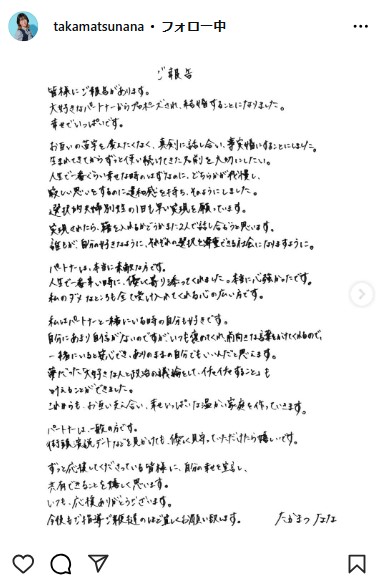 takamatsunana • フォロー中
ご報告
皆様にご報告があります。
大好きなパートナーからプロポーズされ、結婚することになりました。
幸せでいっぱいです。
お互いの苗字を変えたくなく、真剣に話し合い、事実婚にすることにしました。
生まれてきてからずっと使い続けてきた名前を大切にしたい。
人生で一番ぐらい幸せな時のはずなのに、どちらかが我慢し、
寂しい思いをするのに違和感を持ち、そのようにしました。
選択的夫婦別姓の1日も早い実現を願っています。
実現されたら、籍を入れるかどうかまた2人で話し合おうと思います。
誰もが、自分の好きなように、それぞれの選択を尊重できる社会になりますように。
パートナーは、本当に素敵な方です。
人生で一番辛い時に、優しく寄り添ってくれました。本当に心強かったです。
私のダメなところも全て受け入れてくれる心の広い方です。
私はパートナーと一緒にいる時の自分も好きです。
自分にあまり自信がないのですが、いつも褒めてくれ、前向きな言葉をかけてくれるので、
一緒にいると安心でき、ありのままの自分でもいいんだと思えます。
夢だった「大好きな人と政治の議論をして、イチャイチャすること」も
叶えることができました。
これからも、お互い支え合い、幸せいっぱいな温かい家庭を作っていきます。
パートナーは、一般の方です。
街頭演説デートなどを見かけても、優しく見守っていただけたら嬉しいです。
ずっと応援してくださっている皆様に、自分の幸せを宣言し、
共有できることを嬉しく思います。
いつも、応援ありがとうございます。
今後もご指導ご鞭撻のほど宜しくお願い致します。 たかまつなな